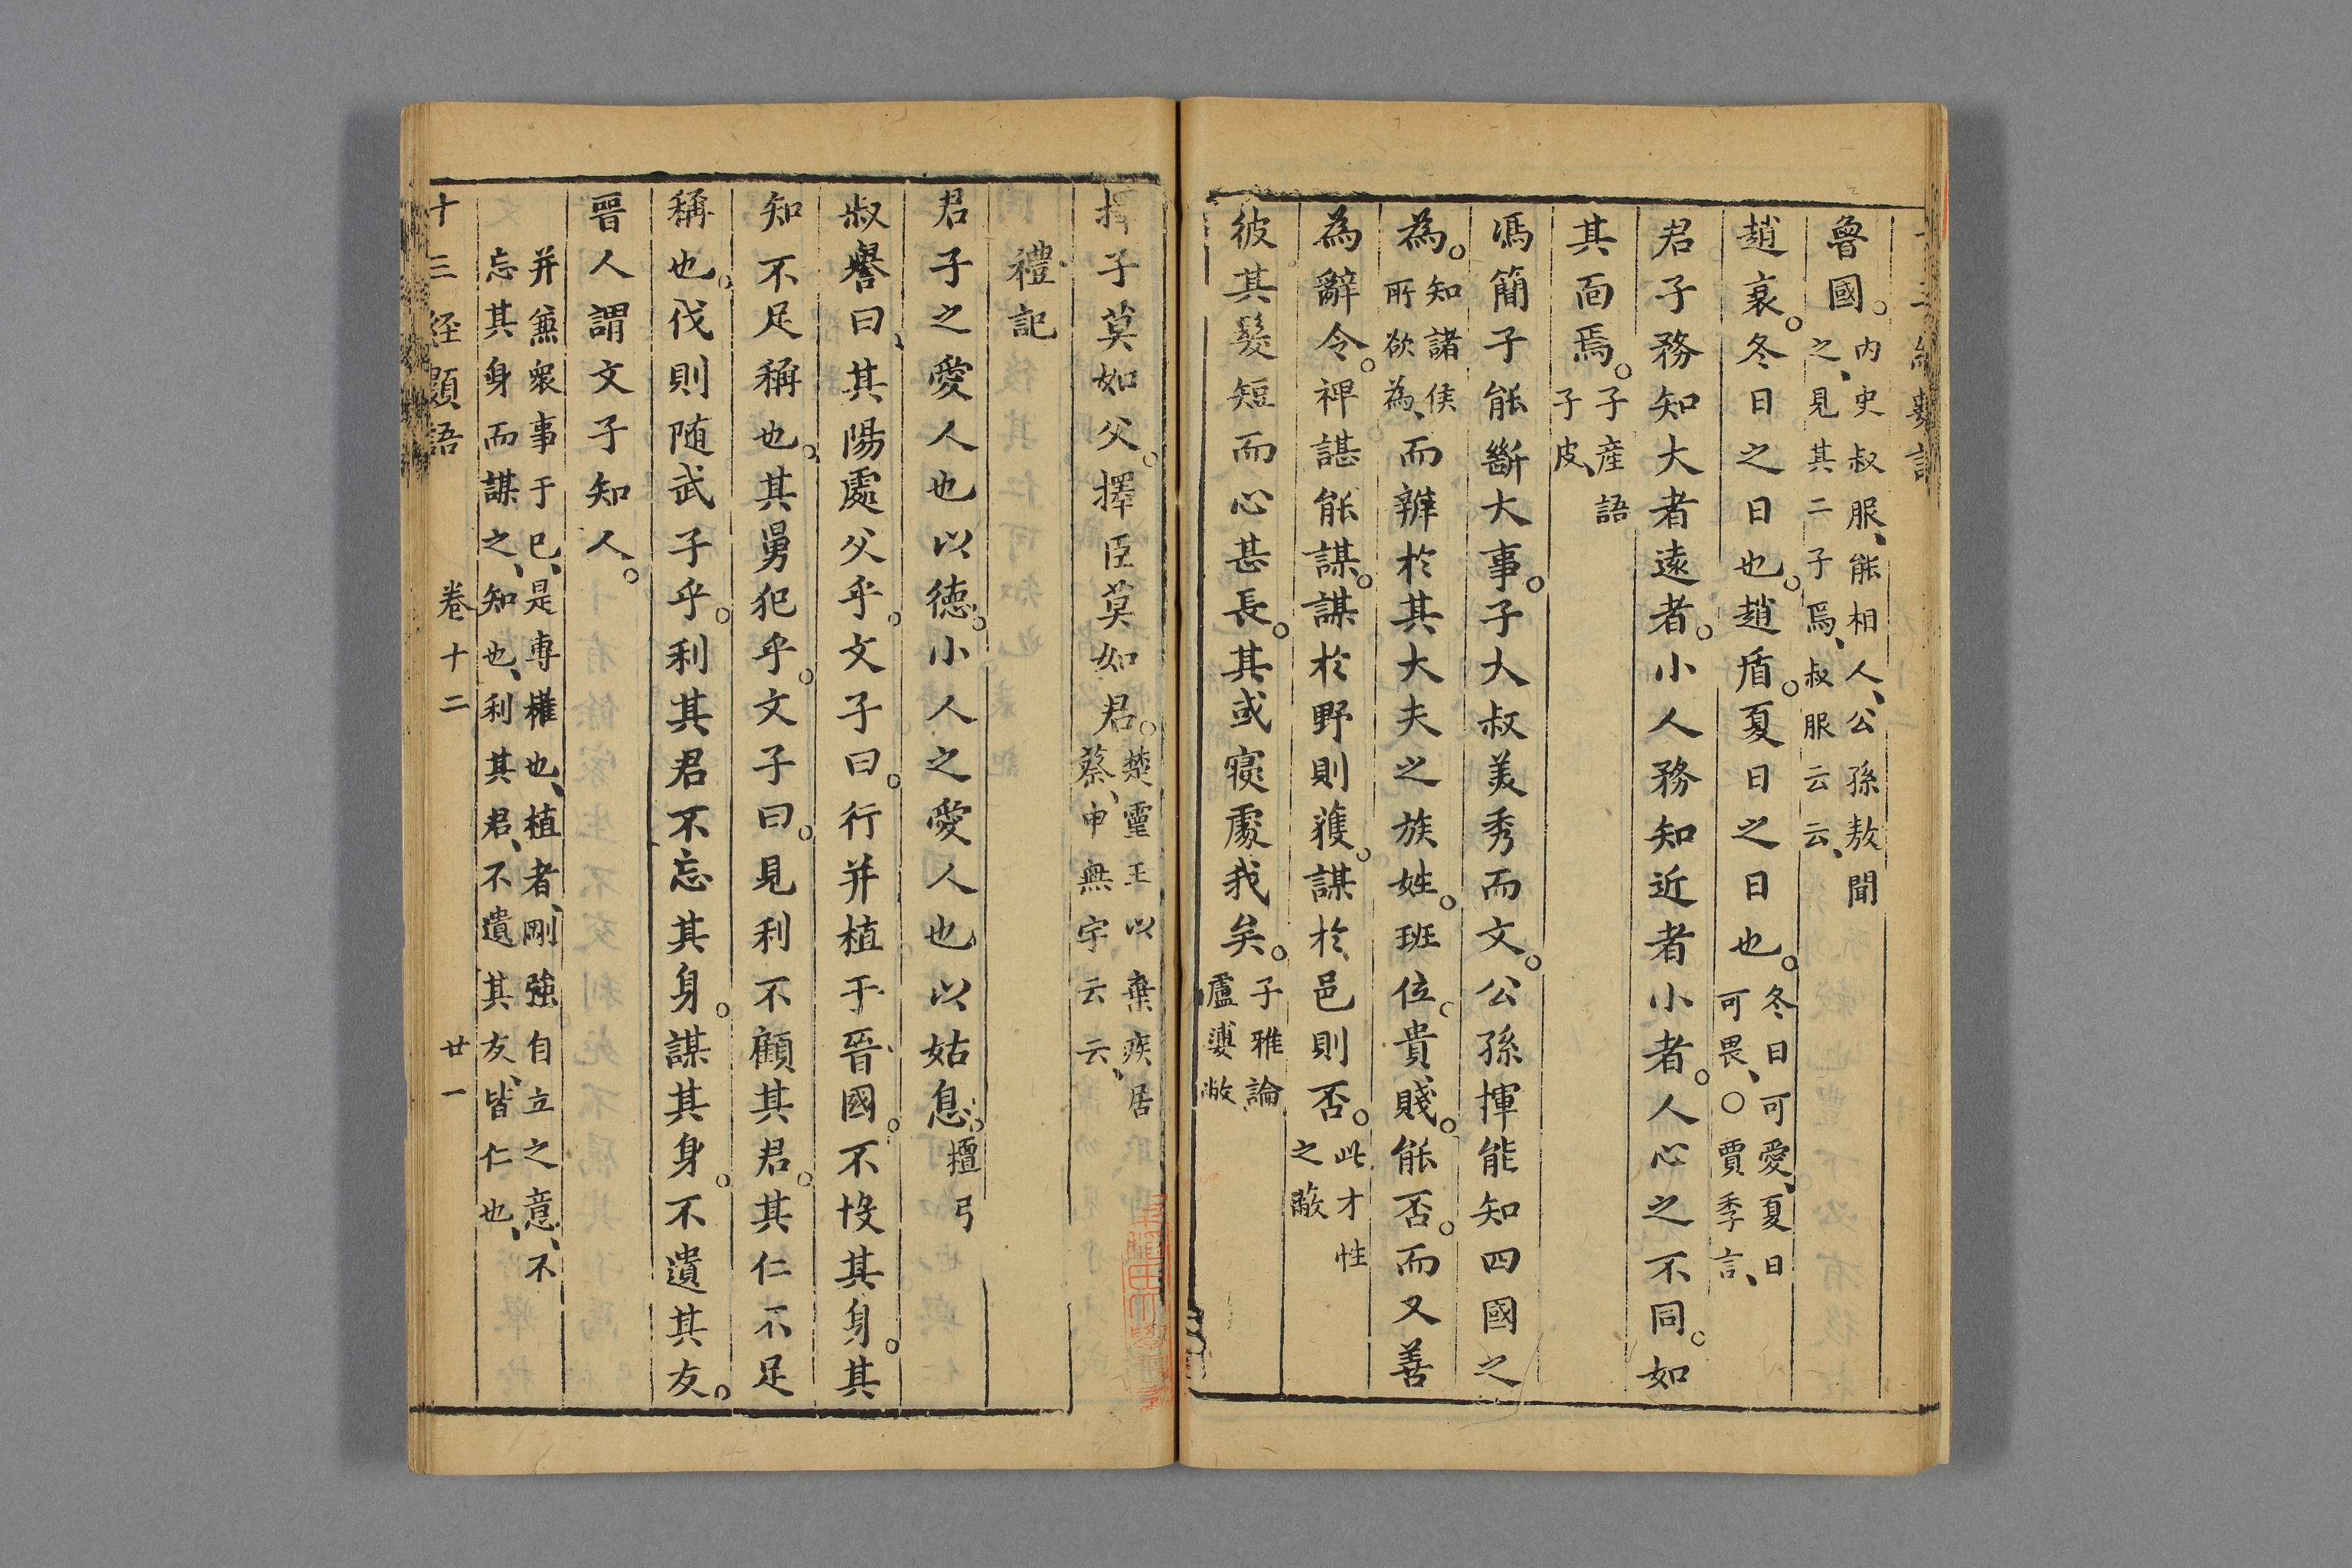 魯國。内史叔服、能相人、公孫敖聞
之、見其二子焉、叔服云云、
趙衰。冬日之日也。趙盾。夏日之日也。冬日可愛、夏日
可畏、○賈季言、
君子務知大者遠者。小人務知近者小者。人心之不同。如
其面焉。子産語
子皮、
馮簡子能斷大事。子大叔美秀而文。公孫揮能知四國之
為。知諸侯
所欲為、而辨於其大夫之族姓。班位。貴賤。能否。而又善
為辭令。裨諶能謀。謀於野則獲。謀於邑則否。此才性
之蔽
彼其髮短而心甚長。其或寢處我矣。子雅論
盧蒲嫳
擇子莫如父。擇臣莫如君。楚靈王以棄疾居
蔡、申無宇云云、
禮記
君子之愛人也以德。小人之愛人也以姑息。檀弓
叔譽曰、其陽處父乎。文子曰。行并植于晉國。不歿其身。其
知不足稱也。其舅犯乎。文子曰。見利不顧其君。其仁不足
稱也。伐則随武子乎。利其君不忘其身。謀其身。不遺其友。
晉人謂文子知人。
并兼衆事于己、是專權也、植者、剛強自立之意、不
忘其身而謀之、知也、利其君、不遺其友、皆仁也、
十三經類語 卷十二 廿一